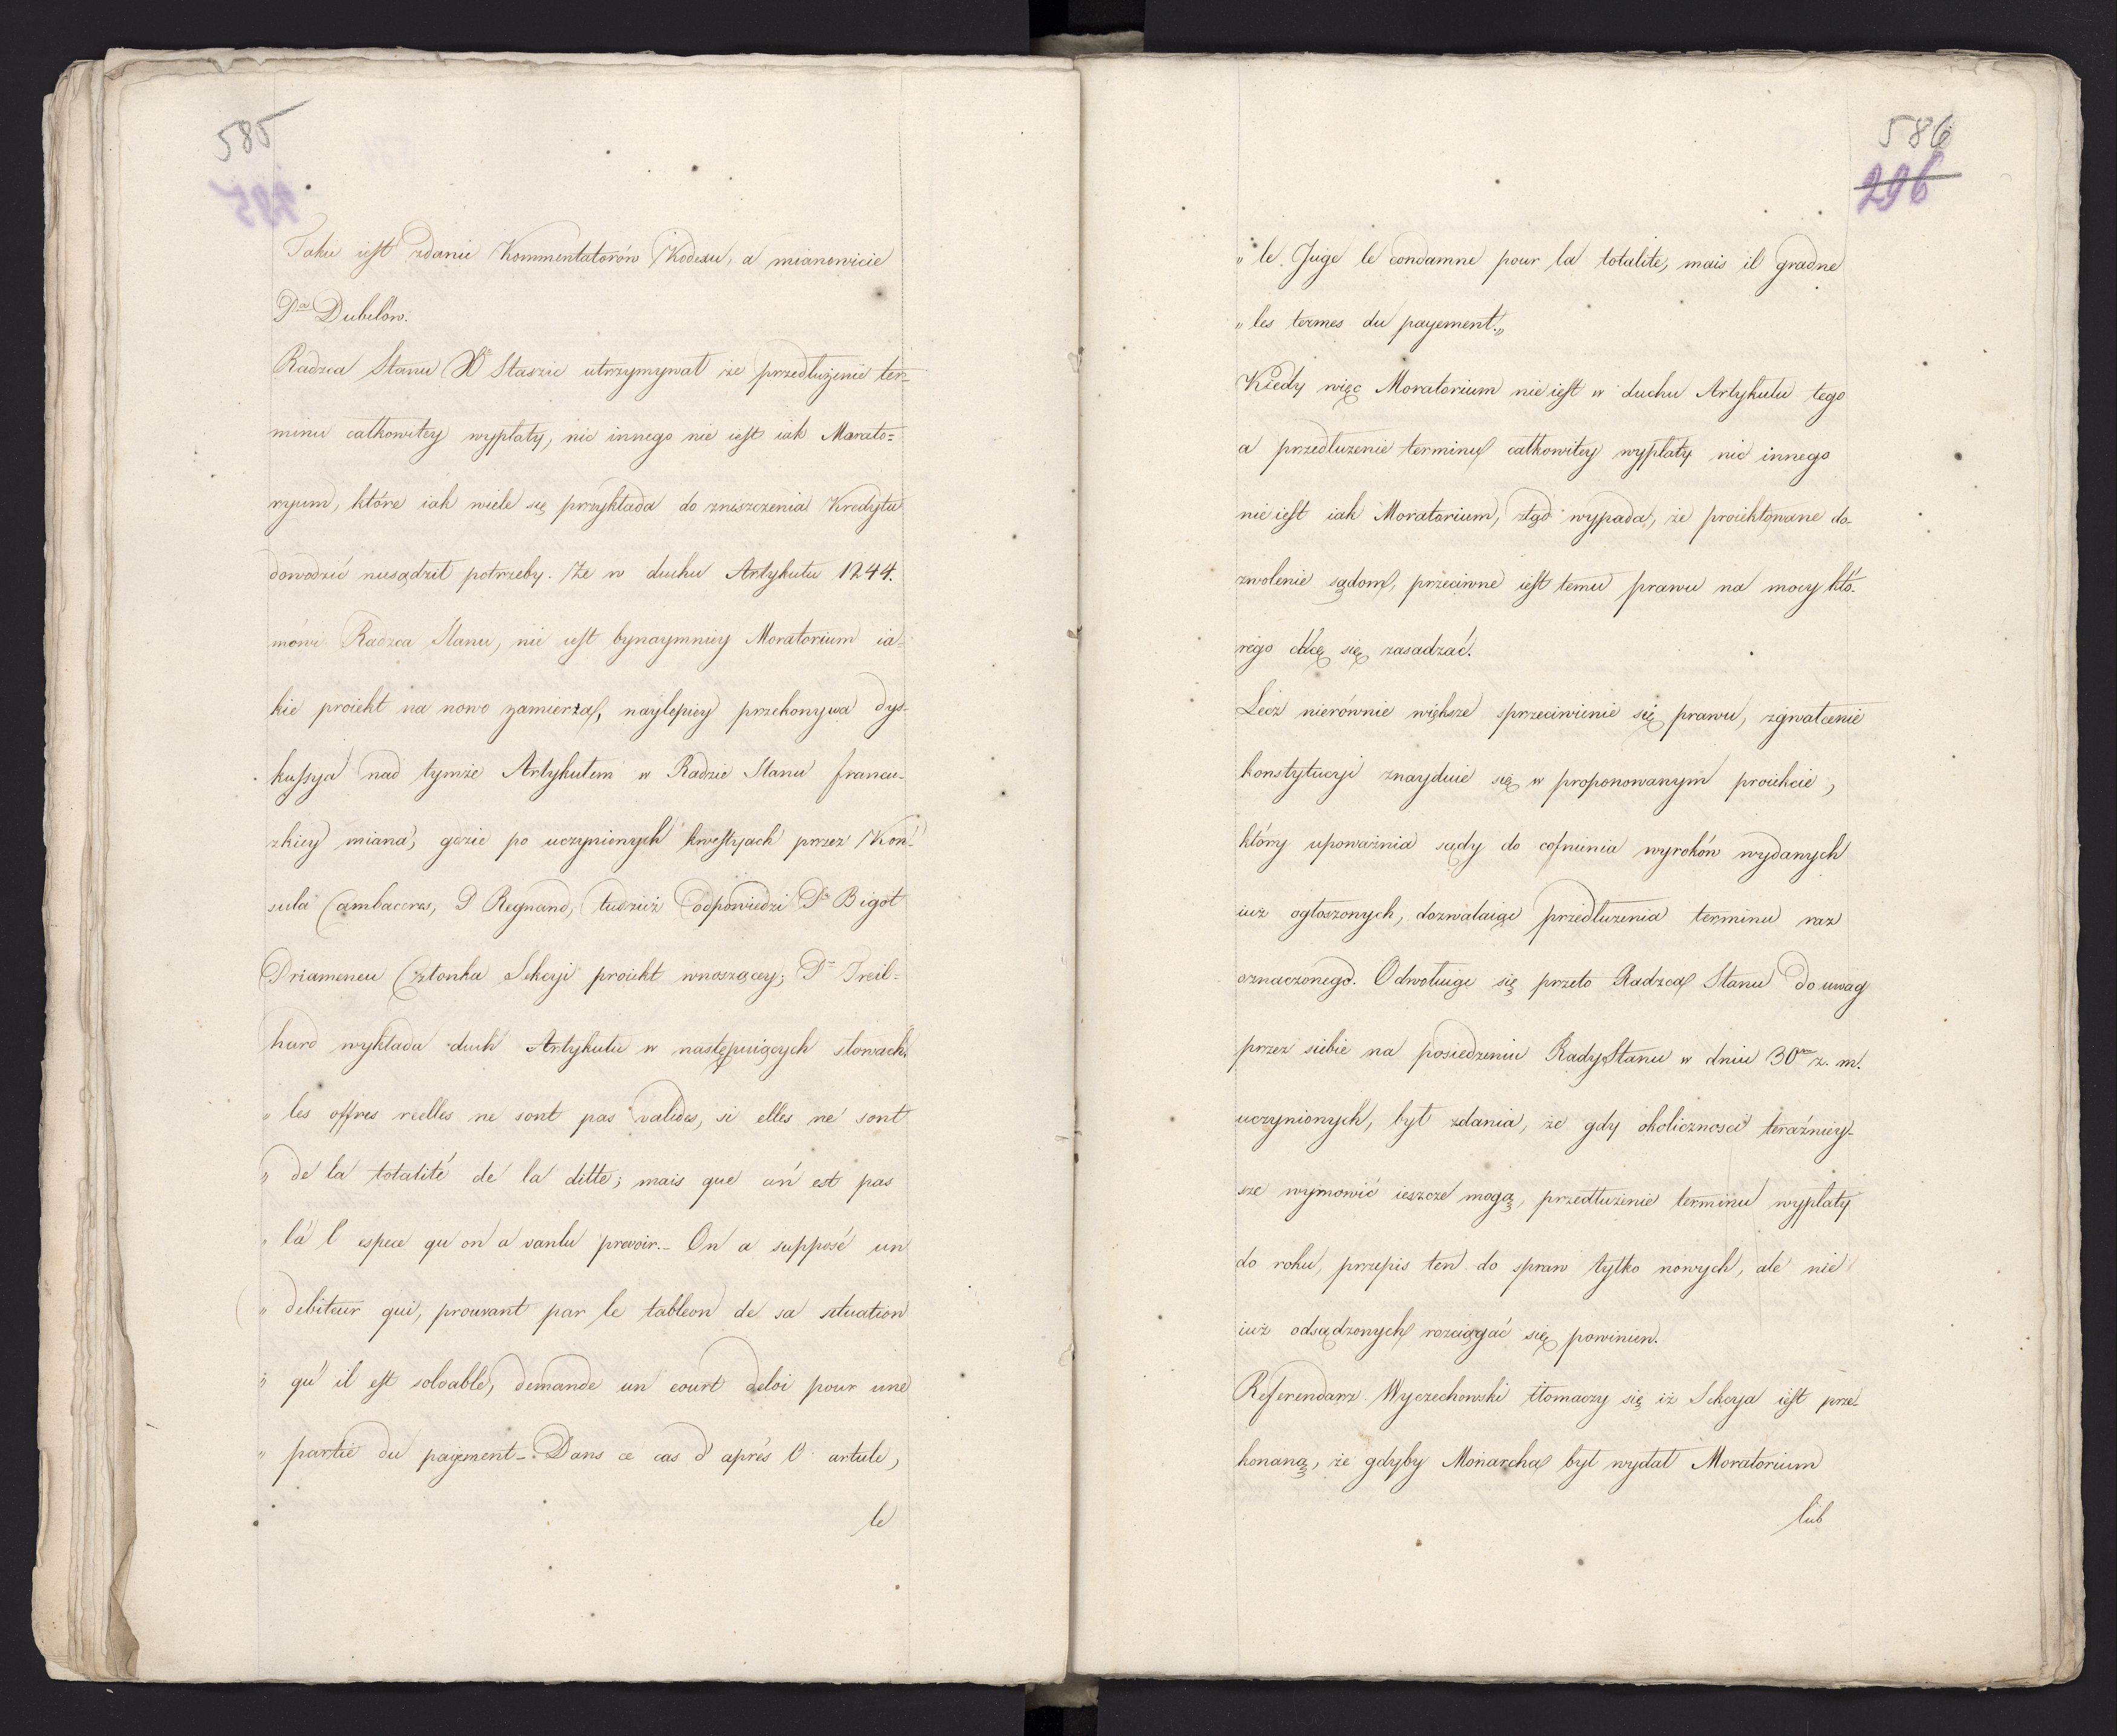 585
295
Takie iest zdanie Kommentatorów Kodexu, a mianowicie
Pa Dubelów.
Radzca Stanu X Staszic utrzymywał że przedłużenie ter-
minu całkowitey wypłaty, nic innego nie iest iak Morato=
ryum, które iak wiele się przykłada do zniszczenia Kredytu
dowodzić niesądził potrzeby. Że w duchu Artykułu 1244.
mówi Radzca Stanu, nie iest bynaymniey Moratorium ia-
kie proiekt na nowo zamierza, naylepiey przekonywa dys-
kussya nad tymże Artykułem w Radzie Stanu francu-
zkiey miana, gdzie po uczynionych kwestyach przez Kon-
sula Cambaceres, P Regnand, tudzież odpowiedzi Pa Bigot
Priameneu Członka Sekcyi proiekt wnoszącey; P Treil=
hard wykłada duch Artykułu w następuiących słowach.
" les offres reelles ne sont pas valides, si elles ne sont
" de la totalité de la ditte; mais que ón est pas
" lá l espece qu on a vanlu prevoir.- On a supposé un
" debiteur qui, prouvant par le tableon de sa situation
" qu' il est solvable, demande un court deloi pour une
" partie du payement-. Dans ce cas d' aprés l' artule,
le
586
296
" le Juge le condamne pour la totalite, mais il gradne
" les termes du payement."
Kiedy więc Moratorium nie iest w duchu Artykułu tego
a przedłuzenie terminu całkowitey wypłaty nic innego
nie iest iak Moratorium, ztąd wypada, że proiektowane do-
zwolenie sądom, przeciwne iest temu prawu na mocy któ-
rego chcą się zasadzać.
Lecz nierównie większe sprzeciwienie się prawu, zgwałcenie
konstytucyi znayduie się w proponowanym proiekcie,
który upoważnia sądy do cofnienia wyroków wydanych
iuz ogłoszonych, dozwalaiąc przedłuzenia terminu raz
oznaczonego. Odwołuiąc się przeto Radzca Stanu do uwag
przez siebie na posiedzeniu Rady Stanu w dniu 30 z. m.
uczynionych, był zdania, że gdy okolicznosci teraźniey-
sze wymowić ieszcze mogą, przedłużenie terminu wypłaty
do roku, przepis ten do spraw tylko nowych, ale nie
iuż odsądzonych rozciągać się powinien.
Referendarz Wyczechowski tłomaczy się iż Sekcya iest prze-
konaną, że gdyby Monarcha był wydał Moratorium
lub